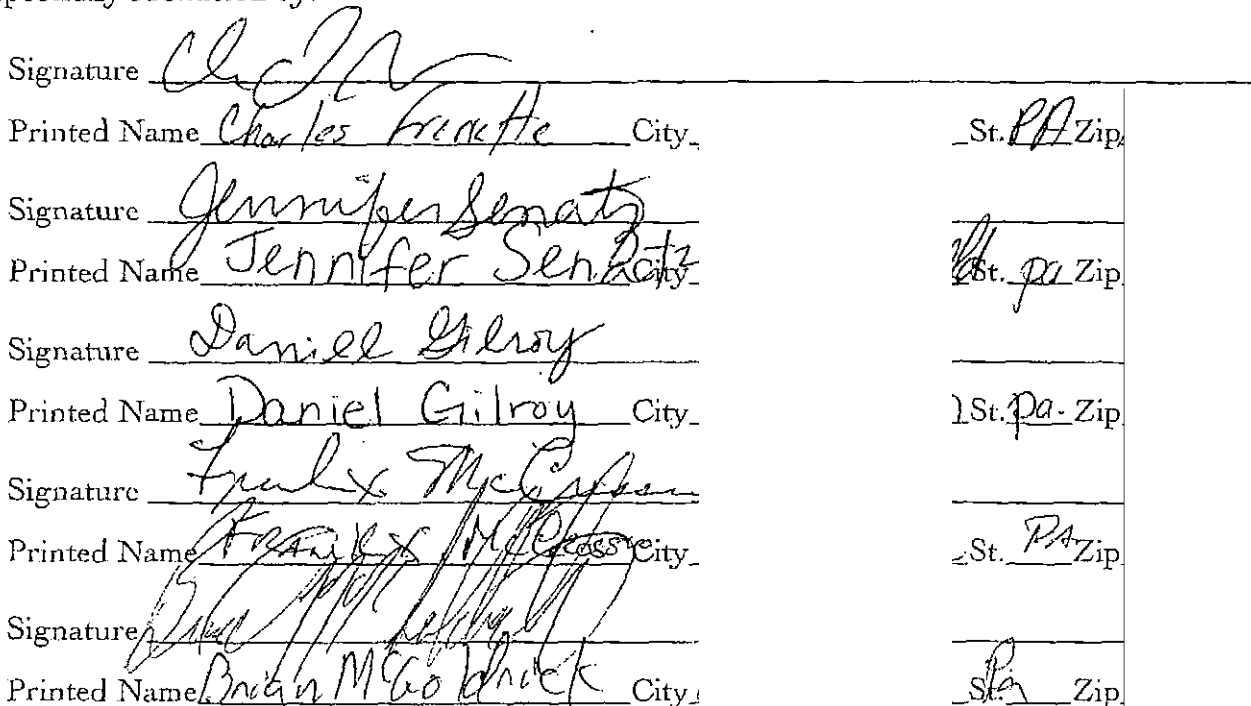 Signature
Printed Name Charles Frenette City St. PA Zip
Signature Jennifer Senatz
Printed Name Jennifer Senatz City St. pa Zip
Signature Daniel Gilroy
Printed Name Daniel Gilroy City St. Pa. Zip
Signature
Printed Name City St. PA Zip
Signature
Printed Name Brian McGoldrick City St. Pa Zip